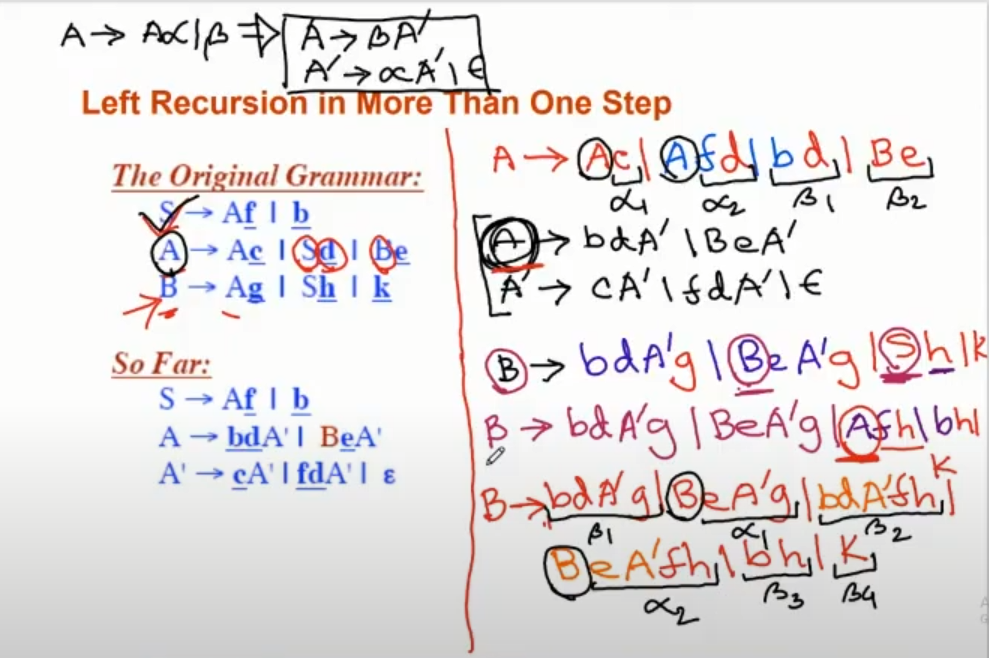 A → Aα|β ⇒ A → βA'
A' → αA' | ϵ
Left Recursion in More Than One Step
The Original Grammar:
S → Af | b
A → Ac | Sd | Be
B → Ag | Sh | k
So Far:
S → Af | b
A → bdA' | BeA'
A' → cA' | fdA' | ε
A → Ac | Afd | bd | Be
α1 α2 β1 β2
A → bdA' | BeA'
A' → cA' | fdA' | ϵ
B → bdA'g | BeA'g | Sh | k
B → bdA'g | BeA'g | Afh | bh |
k
B → bdA'g | BeA'g | bdA'fh |
β1 α1 β2
BeA'fh | bh | k
α2 β3 β4